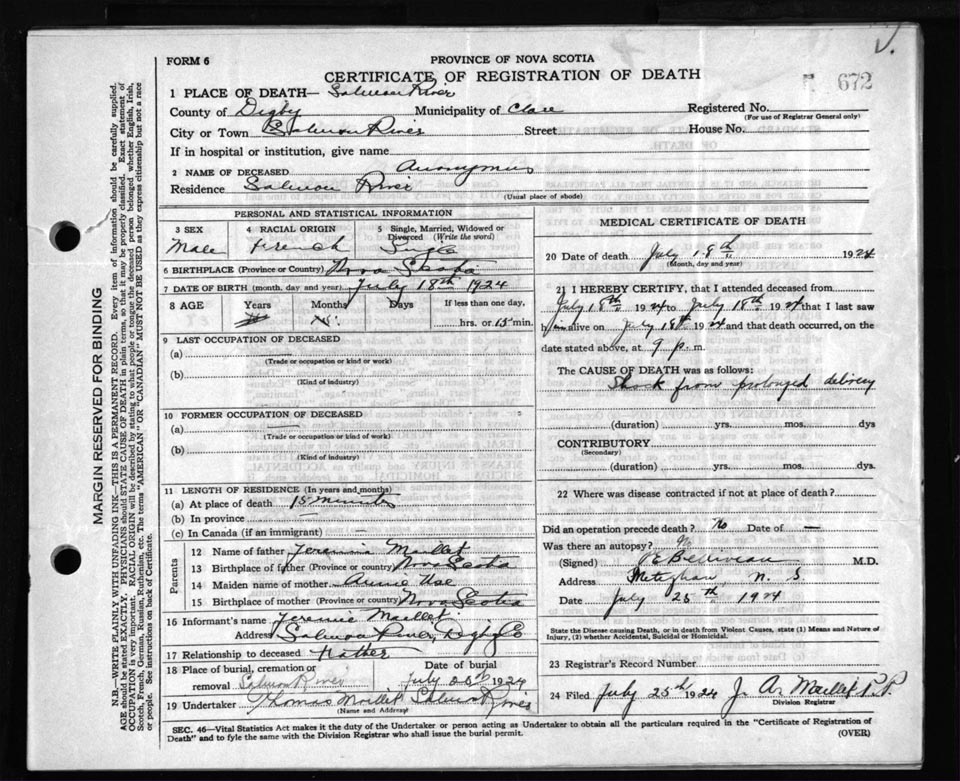 V.
FORM 6
PROVINCE OF NOVA SCOTIA
CERTIFICATE OF REGISTRATION OF DEATH
672
1 PLACE OF DEATH— Salmon River
County of Digby Municipality of Clare Registered No.
(For use of Registrar General only)
City or Town Salmon River Street House No.
If in hospital or institution, give name
2 NAME OF DECEASED Anonymus
Residence Salmon River
(Usual place of abode)
PERSONAL AND STATISTICAL INFORMATION
3 SEX 4 RACIAL ORIGIN 5 Single, Married, Widowed or Divorced (Write the word)
Male French Single
6 BIRTHPLACE (Province or Country) Nova Scotia
7 DATE OF BIRTH (month, day and year) July 18th 1924
8 AGE Years Months Days If less than one day,
hrs. or 15 min.
9 LAST OCCUPATION OF DECEASED
(a)
(Trade or occupation or kind or work)
(b)
(Kind of industry)
10 FORMER OCCUPATION OF DECEASED
(a) —
(Trade or occupation or kind of work)
(b)
(Kind of industry)
11 LENGTH OF RESIDENCE (In years and months)
(a) At place of death 15 minutes
(b) In province —
(c) In Canada (if an immigrant) —
Parents
12 Name of father Maillet
13 Birthplace of father (Province or country) Nova Scotia
14 Maiden name of mother Annie
15 Birthplace of mother (Province or country) Nova Scotia
16 Informant's name Jeremie Maillet
Address Salmon River, Digby Co
17 Relationship to deceased Father
18 Place of burial, cremation or removal Salmon River Date of burial July 1924
19 Undertaker Thomas Maillet Salmon River
(Name and Address)
MEDICAL CERTIFICATE OF DEATH
20 Date of death July 18th 1924
(Month, day and year)
21 I HEREBY CERTIFY, that I attended deceased from
July 18th 1924 to July 18th 1924 that I last saw
him alive on July 18th 1924 and that death occurred, on the
date stated above, at 9 p. m.
The CAUSE OF DEATH was as follows:
Shock from prolonged delivery
(duration) yrs. mos. dys
CONTRIBUTORY
(Secondary)
(duration) yrs. mos. dys.
22 Where was disease contracted if not at place of death?
Did an operation precede death? No Date of —
Was there an autopsy? No
(Signed) Belliveau M.D.
Address Meteghan, N. S.
Date July 25th 1924
State the Disease causing Death, or in death from Violent Causes, state (1) Means and Nature of
Injury, (2) whether Accidental, Suicidal or Homicidal.
23 Registrar's Record Number
24 Filed July 25th 1924 J. A. Maillet P.P.
Division Registrar
SEC. 46—Vital Statistics Act makes it the duty of the Undertaker or person acting as Undertaker to obtain all the particulars required in the "Certificate of Registration of
Death" and to fyle the same with the Division Registrar who shall issue the burial permit.
(OVER)
MARGIN RESERVED FOR BINDING
N.B.—WRITE PLAINLY, WITH UNFADING INK—THIS IS A PERMANENT RECORD. Every item of information should be carefully supplied.
AGE should be stated EXACTLY. PHYSICIANS should STATE CAUSE OF DEATH in plain terms, so that it may be properly classified. Exact statement of
OCCUPATION is very important. RACIAL ORIGIN will be described by stating to what people or tongue the deceased person belonged whether English, Irish,
Scotch, French, German, Russian, Ruthenian, etc. The terms "AMERICAN" OR "CANADIAN" MUST NOT BE USED as they express citizenship but not a race
or people. See instructions on back of Certificate.